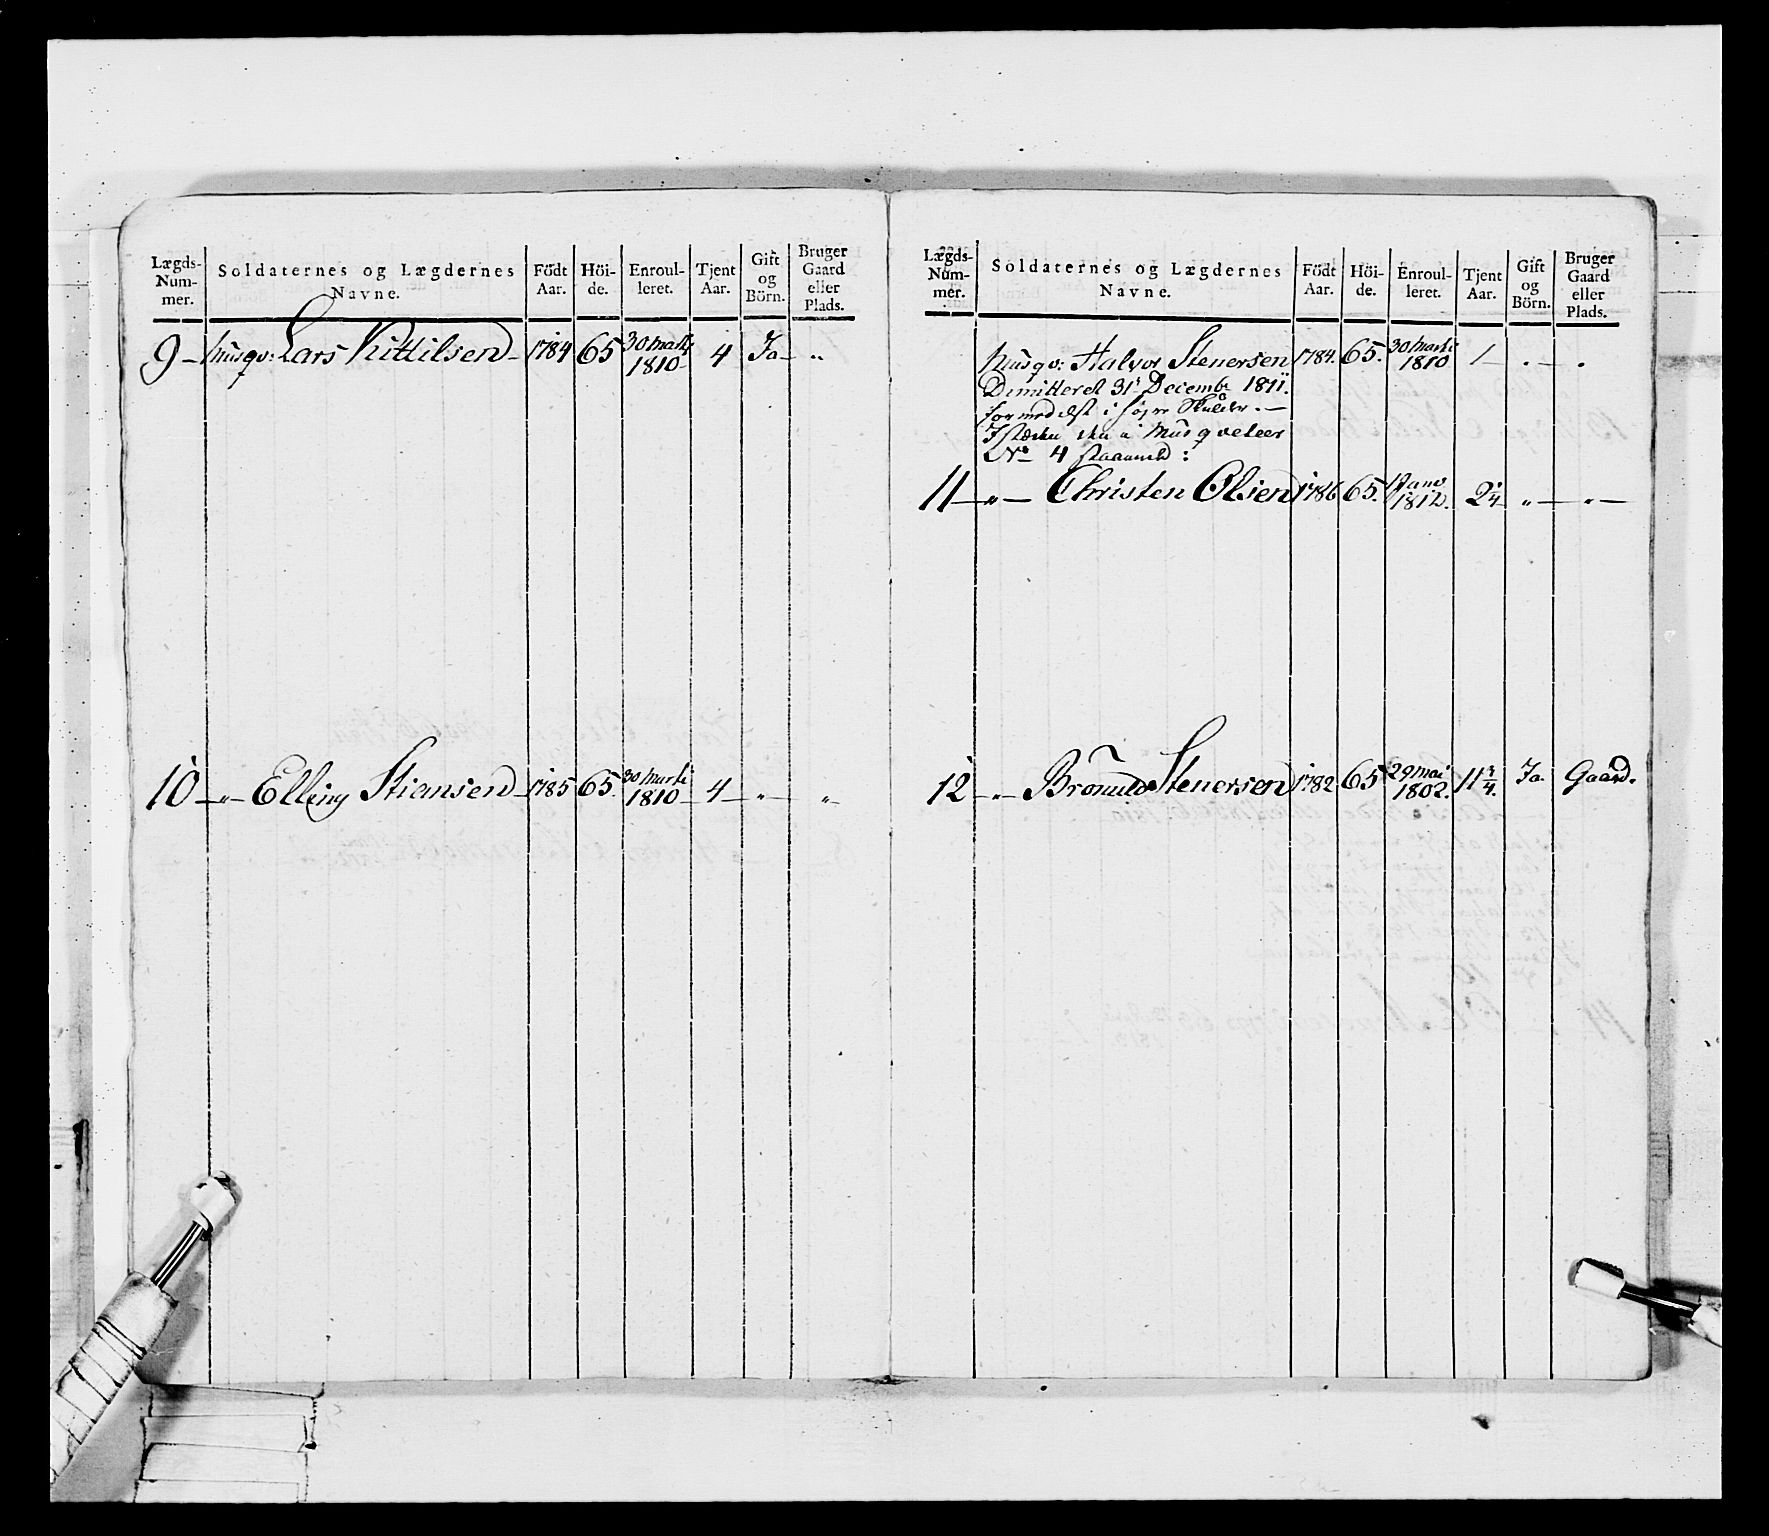 Lægds-Num-mer. Soldaternes og Lægdernes Navne. Födt Aar. Höi-de. Enroul-leret. Tjent Aar. Gift og Börn. Bruger Gaard eller Plads.
9 – Musqv: Lars Kittilsen – 1784 65 30 Marti 1810 4 Ja – "
10 – " – Elling Stiansen – 1785 65. 30 Marti 1810 – 4 – " – "
Lægds-Num-mer. Soldaternes og Lægdernes Navne. Födt Aar. Höi-de. Enroul-leret. Tjent Aar. Gift og Börn. Bruger Gaard eller Plads.
Musqv: Halvor Stenersen 1784. 65. 30 Marti 1810 1 – . – .
Dimitteret 31t Decembr 1811.
formedelst i højre Skulder. –
Musqveteer
No 4 :
11 – " – Christen Olsen 1786 65. 1 Janv 1812. 2 1/4 " – " –
12 – " – Stenersen 1782 65 29 Mai 1802. 11 3/4. Ja Gaard.